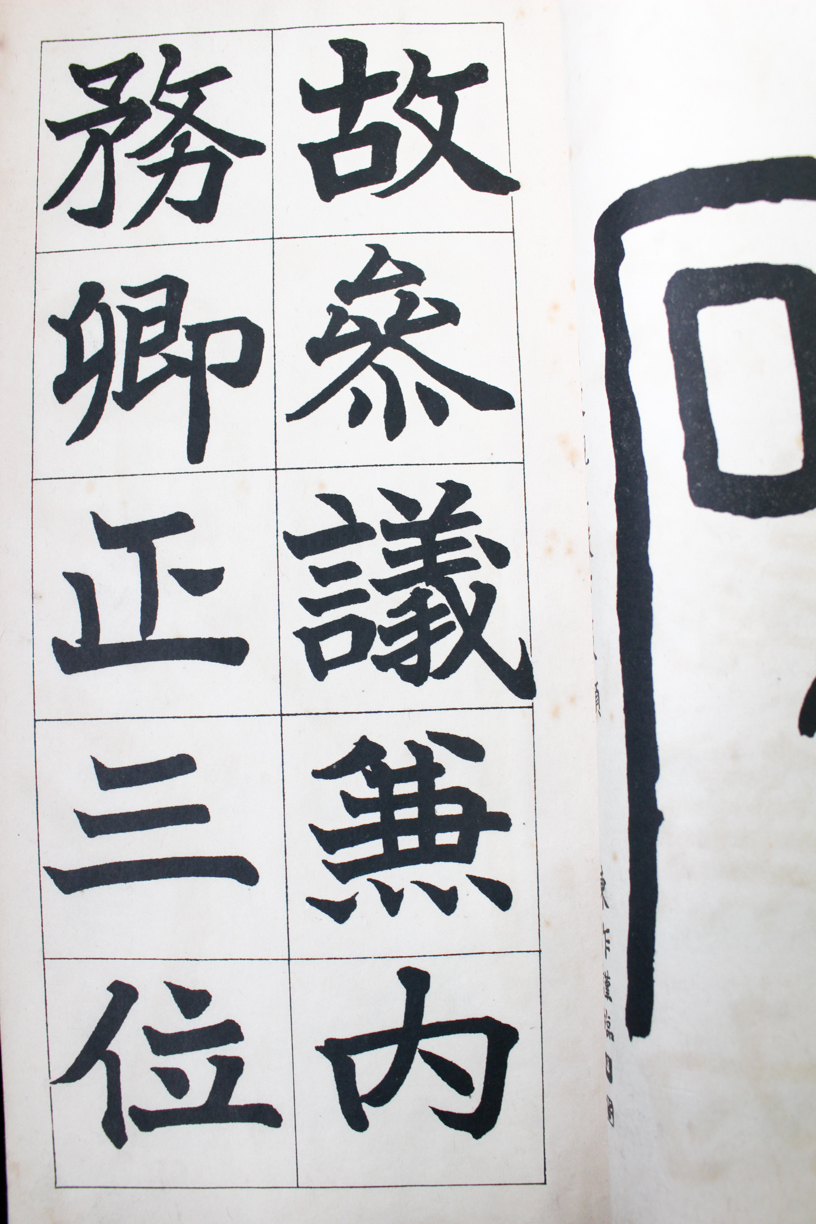 故參議兼内
務卿正三位